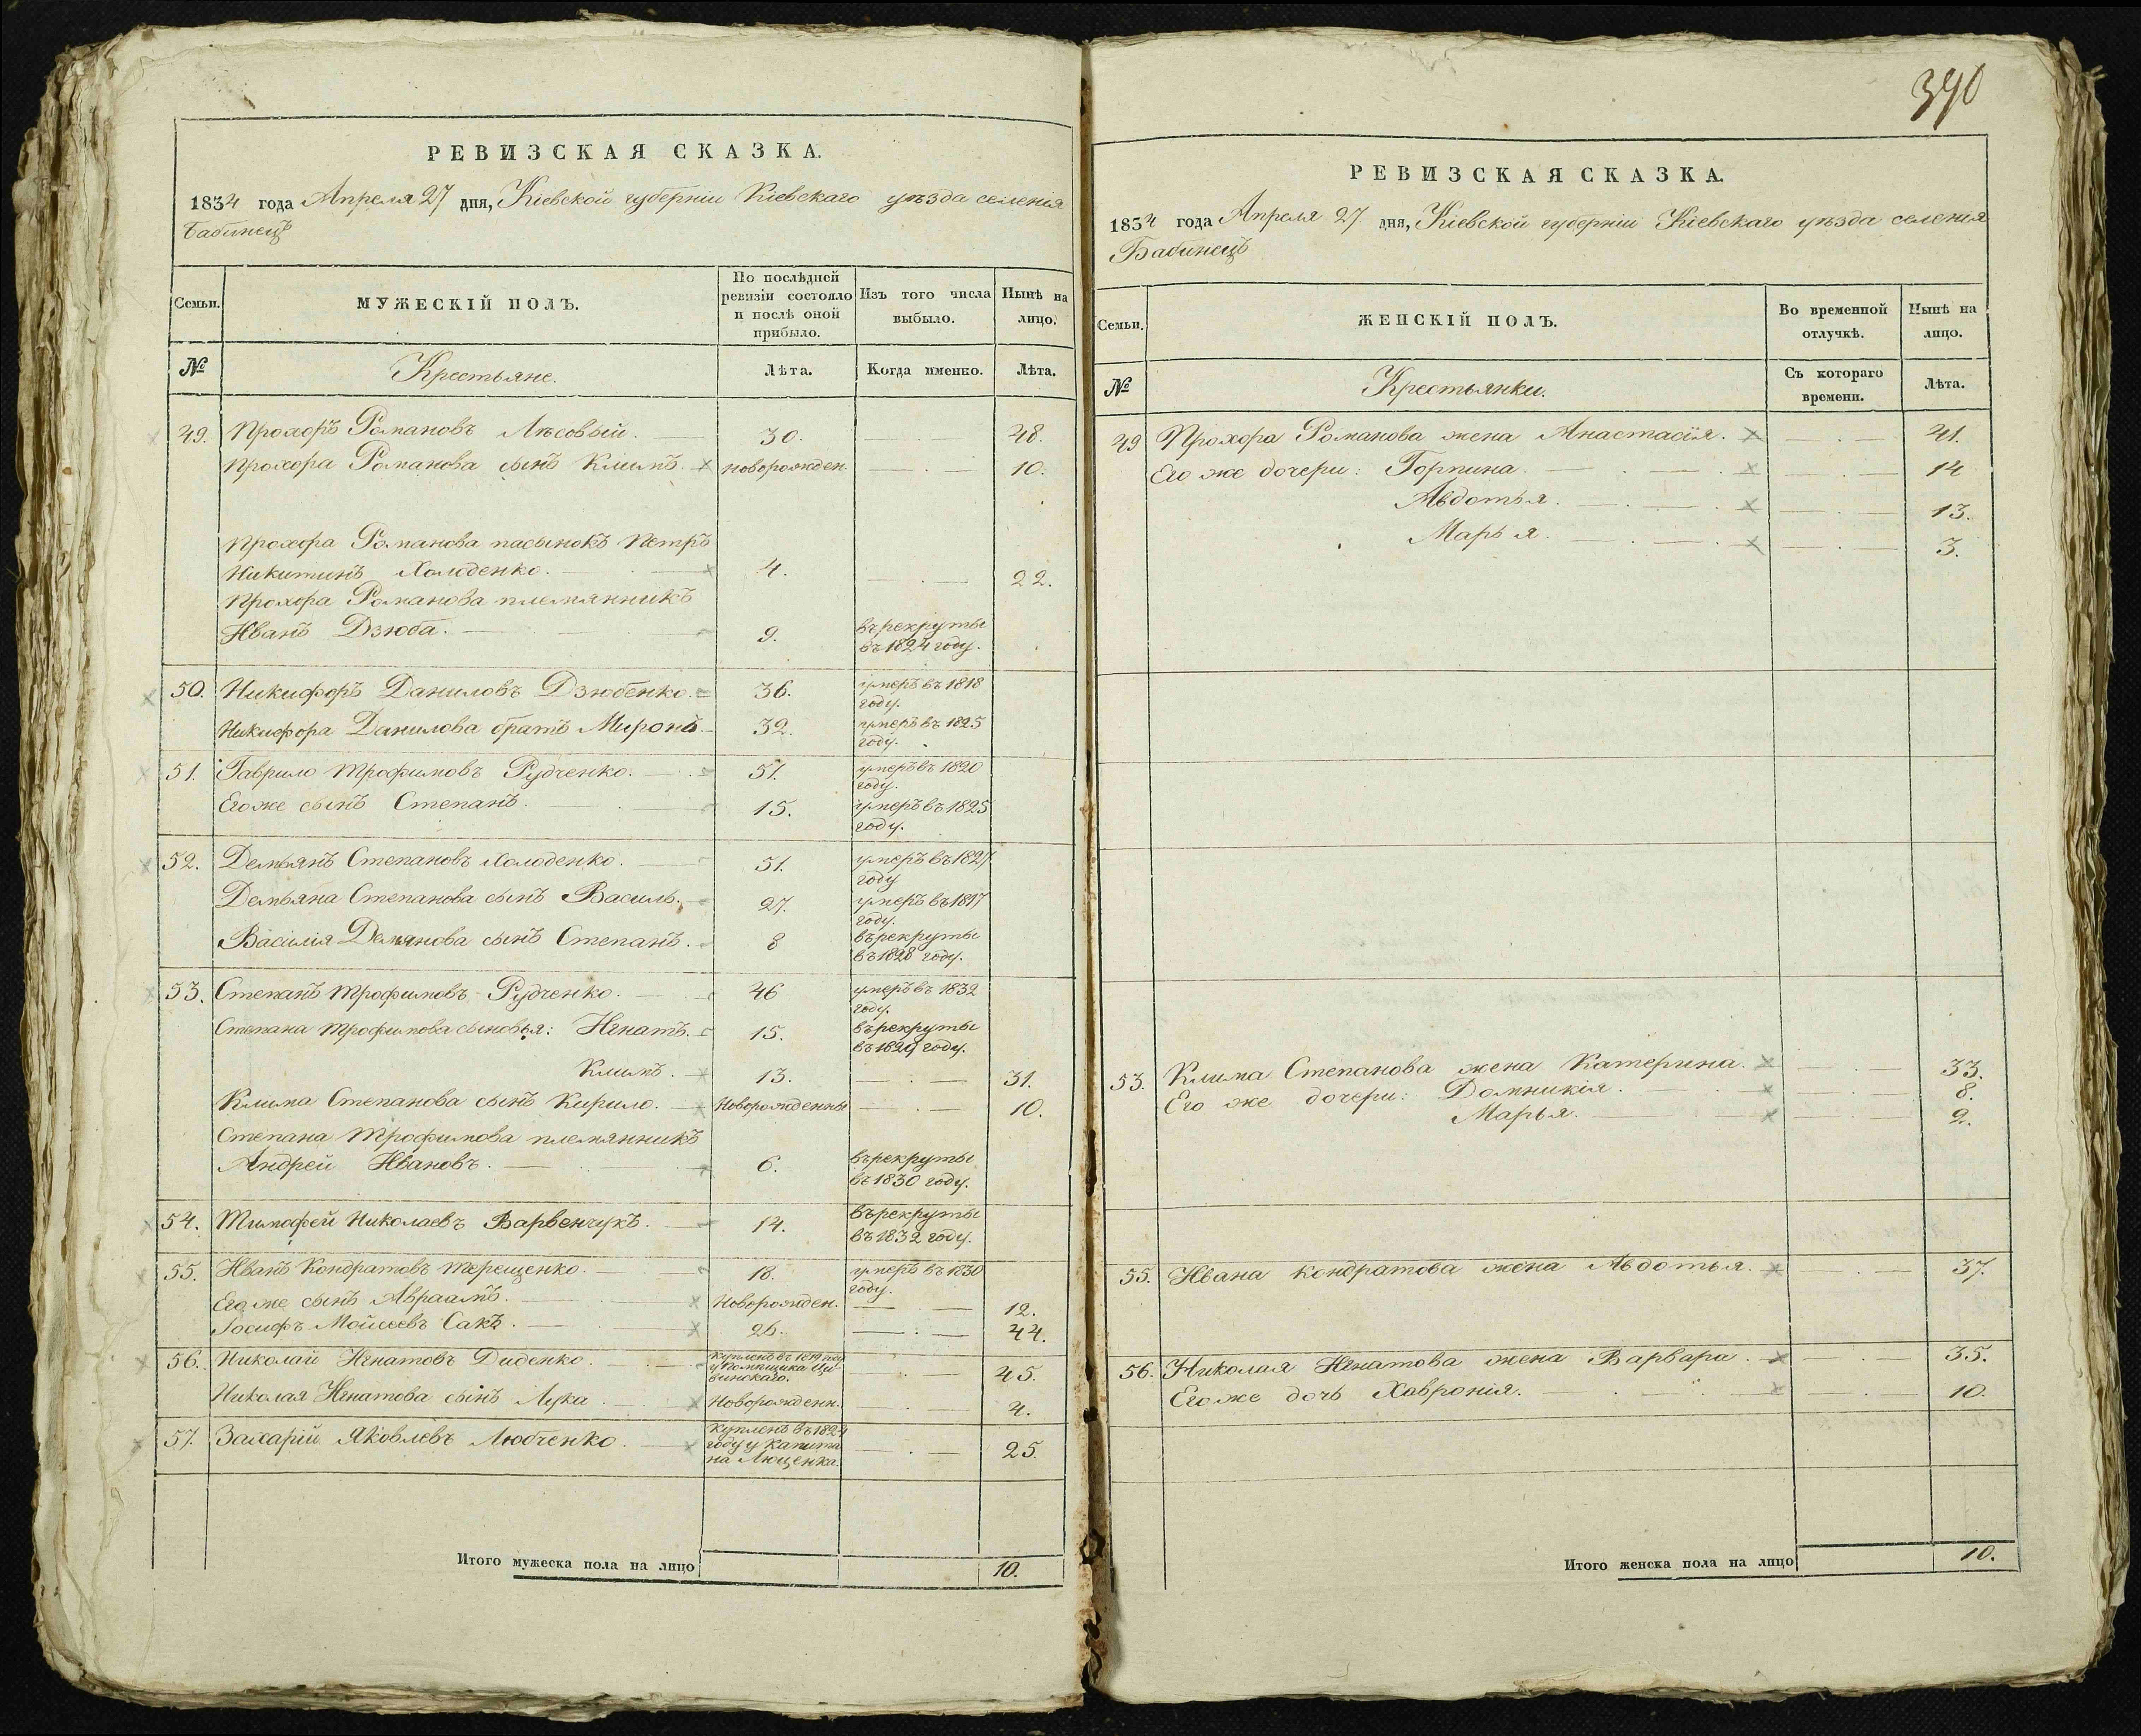 РЕВИЗСКАЯ СКАЗКА.
1834 года Апреля 27 дня, Кіевской губерніи Кіевскаго уѣзда селенія
Бабинецъ
Семьи.
МУЖЕСКІЙ ПОЛЪ.
По послѣдней
ревизіи состояло
и послѣ оной
прибыло.
Изъ того числа
выбыло.
Нынѣ на
лицо.
№
Крестьяне.
Лѣта.
Когда именно.
Лѣта.
49. Прохоръ Романовъ Лѣсовый. 30. 48.
Прохора Романова сынъ Климъ. новорожден. 10.
Прохора Романова пасынокъ Петръ
Никитинъ Холоденко. 4. 22.
Прохора Романова племянникъ
Иванъ Дзюба. 9. въ рекруты
въ 1824 году.
50. Никифоръ Даниловъ Дзюбенко. 36. умеръ въ 1818
году.
Никифора Данилова братъ Миронъ. 32. умеръ въ 1825
году.
51. Гаврило Трофимовъ Рудченко. 57. умеръ въ 1820
году.
Его же сынъ Степанъ. 15. умеръ въ 1825
году.
52. Демьянъ Степановъ Холоденко. 51. умеръ въ 1827
году
Демьяна Степанова сынъ Василь. 27. умеръ въ 1817
году.
Василія Демянова сынъ Степанъ. 8 въ рекруты
въ 1828 году.
53. Степанъ Трофимовъ Рудченко. 46 умеръ въ 1832
году.
Степана Трофимова сыновья: Игнатъ. 15. въ рекруты
въ 1829 году.
Климъ. 13. 31.
Клима Степанова сынъ Кирило. Новорожденны 10.
Степана Трофимова племянникъ
Андрей Ивановъ. 6. въ рекруты
въ 1830 году.
54. Тимофей Николаевъ Варвенчукъ. 14. въ рекруты
въ 1832 году.
55. Иванъ Кондратовъ Терещенко. 18. умеръ въ 1830
году.
Его же сынъ Авраамъ. Новорожден. 12.
Іосифъ Мойсеевъ Сакъ. 26. 44.
56. Николай Игнатовъ Диденко. Купленъ въ 1819 году
у помещика
винскаго. 45.
Николая Игнатова сынъ Лука Новорожденн. 4.
57. Захарій Яковлевъ Любченко. Купленъ въ 1824
году у Капита
на Люценка. 25.
Итого мужеска пола на лицо 10.
390
РЕВИЗСКАЯ СКАЗКА.
1834 года Апреля 27 дня, Кіевской губерніи Кіевскаго уѣзда селенія
Бабинецъ
Семьи.
ЖЕНСКІЙ ПОЛЪ.
Во временной
отлучкѣ.
Нынѣ на
лицо.
№
Крестьянки.
Съ котораго
времени.
Лѣта.
49 Прохора Романова жена Анастасія. 41.
Его же дочери: Горпина. 14
Авдотья. 13.
Марья. 3.
53. Клима Степанова жена Катерина. 33.
Его же дочери: Домникія. 8.
Марья. 2.
55. Ивана Кондратова жена Авдотья. 37.
56. Николая Игнатова жена Варвара. 35.
Его же дочь Хавронія. 10.
Итого женска пола на лицо 10.